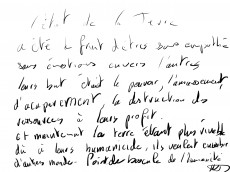 L'état de la Terre
a été le fruit d'êtres sans empathie
sans émotions envers l'autre,
leurs but était le pouvoir, l'amassement
d'acaparement, la destruction des
ressources à leurs profit.
et maintenant la terre étant plus vivable
dû à leurs humanicide, ils veulent
d'autres mondes. Point de bascule de l'humanité